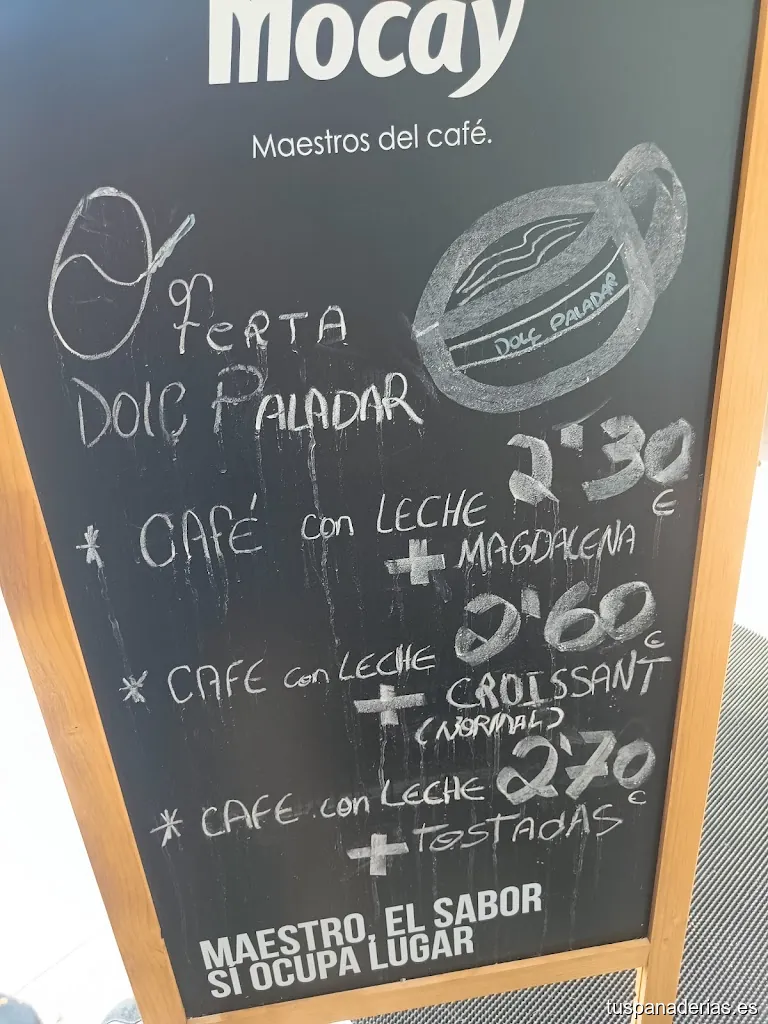 Mocay
Maestros del café.
Oferta
DOLÇ PALADAR
DOLÇ PALADAR
2'30 €
* CAFÉ con LECHE
+ MAGDALENA
2'60 €
* CAFE con LECHE
+ CROISSANT
(NORMAL)
* CAFE con LECHE 2'70 €
+ TOSTADAS
MAESTRO, EL SABOR
SÍ OCUPA LUGAR
tuspanaderias.es